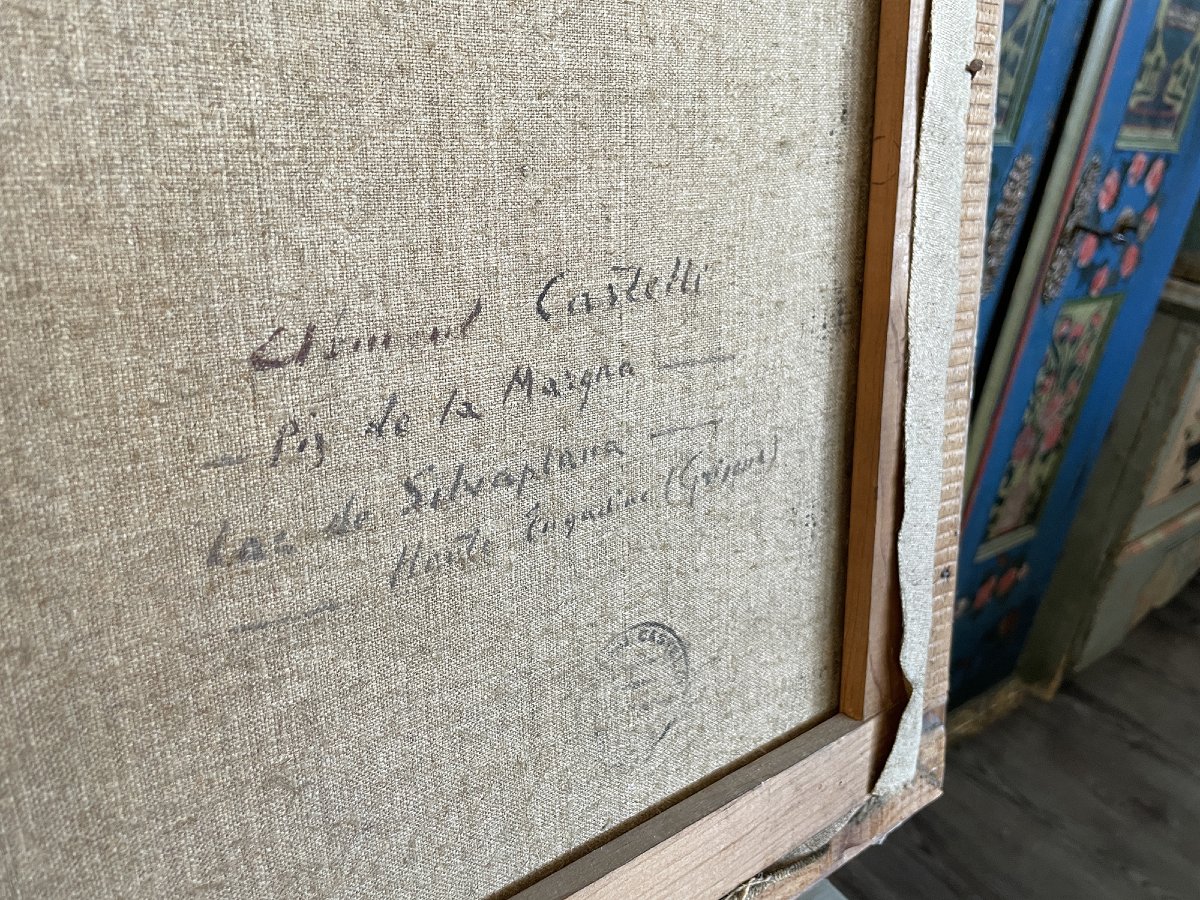 Clément Castelli
— Piz de la Margna —
Lac de Silvaplana —
— Haute Engadine (Grisons)